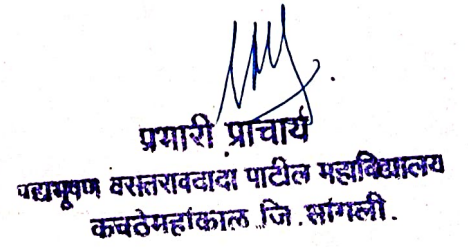 प्रभारी प्राचार्य
पद्मभूषण वसंतरावदादा पाटील महाविद्यालय
कवठेमहांकाळ जि. सांगली.